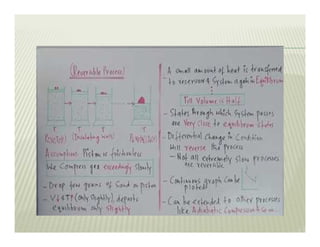 (Reversible Process)
T T T T
(Insulating walls)
Assumption: Piston is frictionless
We Compress gas exceedingly slowly
- Drop few grains of Sand on piston
- V↓ &T↑ (only slightly), departs
equilibrium only slightly
- A small amount of heat is transferred
to reservoir & System again in Equilibrium
Till Volume is Half
- States through which System passes
are Very Close to equilibrium states
- Differential Change in Condition
Will reverse the process
- Not all extremely slow processes
are reversible
- Continuous graph can be
plotted
- Can be extended to other processes
like Adiabatic Compression